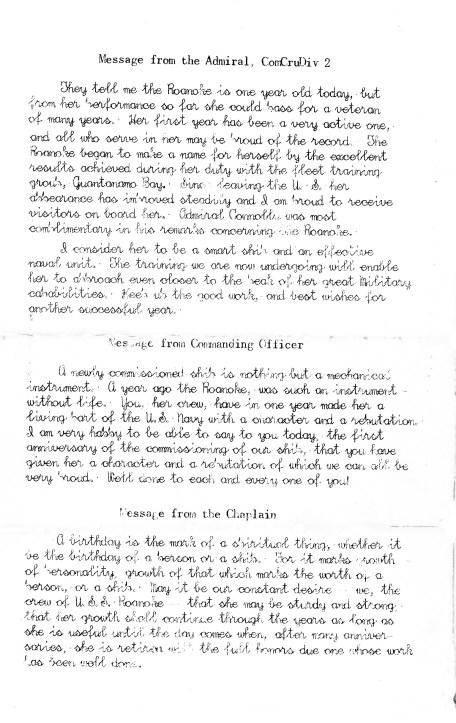 Message from the Admiral, ComCruDiv 2
They tell me the Roanoke is one year old today, but
from her performance so far she could pass for a veteran
of many years. Her first year has been a very active one,
and all who serve in her may be proud of the record. The
Roanoke began to make a name for herself by the excellent
results achieved during her duty with the fleet training
group, Guantanamo Bay. Since leaving the U. S. her
appearance has improved steadily and I am proud to receive
visitors on board her. Admiral Connolly was most
complimentary in his remarks concerning the Roanoke.
I consider her to be a smart ship and an effective
naval unit. The training we are now undergoing will enable
her to approach even closer to the peak of her great Military
capabilities. Keep up the good work, and best wishes for
another successful year.
Message from Commanding Officer
A newly commissioned ship is nothing but a mechanical
instrument. A year ago the Roanoke, was such an instrument -
without life. You, her crew, have in one year made her a
living part of the U.S. Navy with a character and a reputation.
I am very happy to be able to say to you today, the first
anniversary of the commissioning of our ship, that you have
given her a character and a reputation of which we can all be
very proud. Well done to each and every one of you!
Message from the Chaplain
A birthday is the mark of a spiritual thing, whether it
be the birthday of a person or a ship. For it marks growth
of personality, growth of that which marks the worth of a
person, or a ship. May it be our constant desire - we, the
crew of U. S. S. Roanoke - that she may be sturdy and strong,
that her growth shall continue through the years as long as
she is useful until the day comes when, after many anniver-
saries, she is retired with the full honors due one whose work
has been well done.